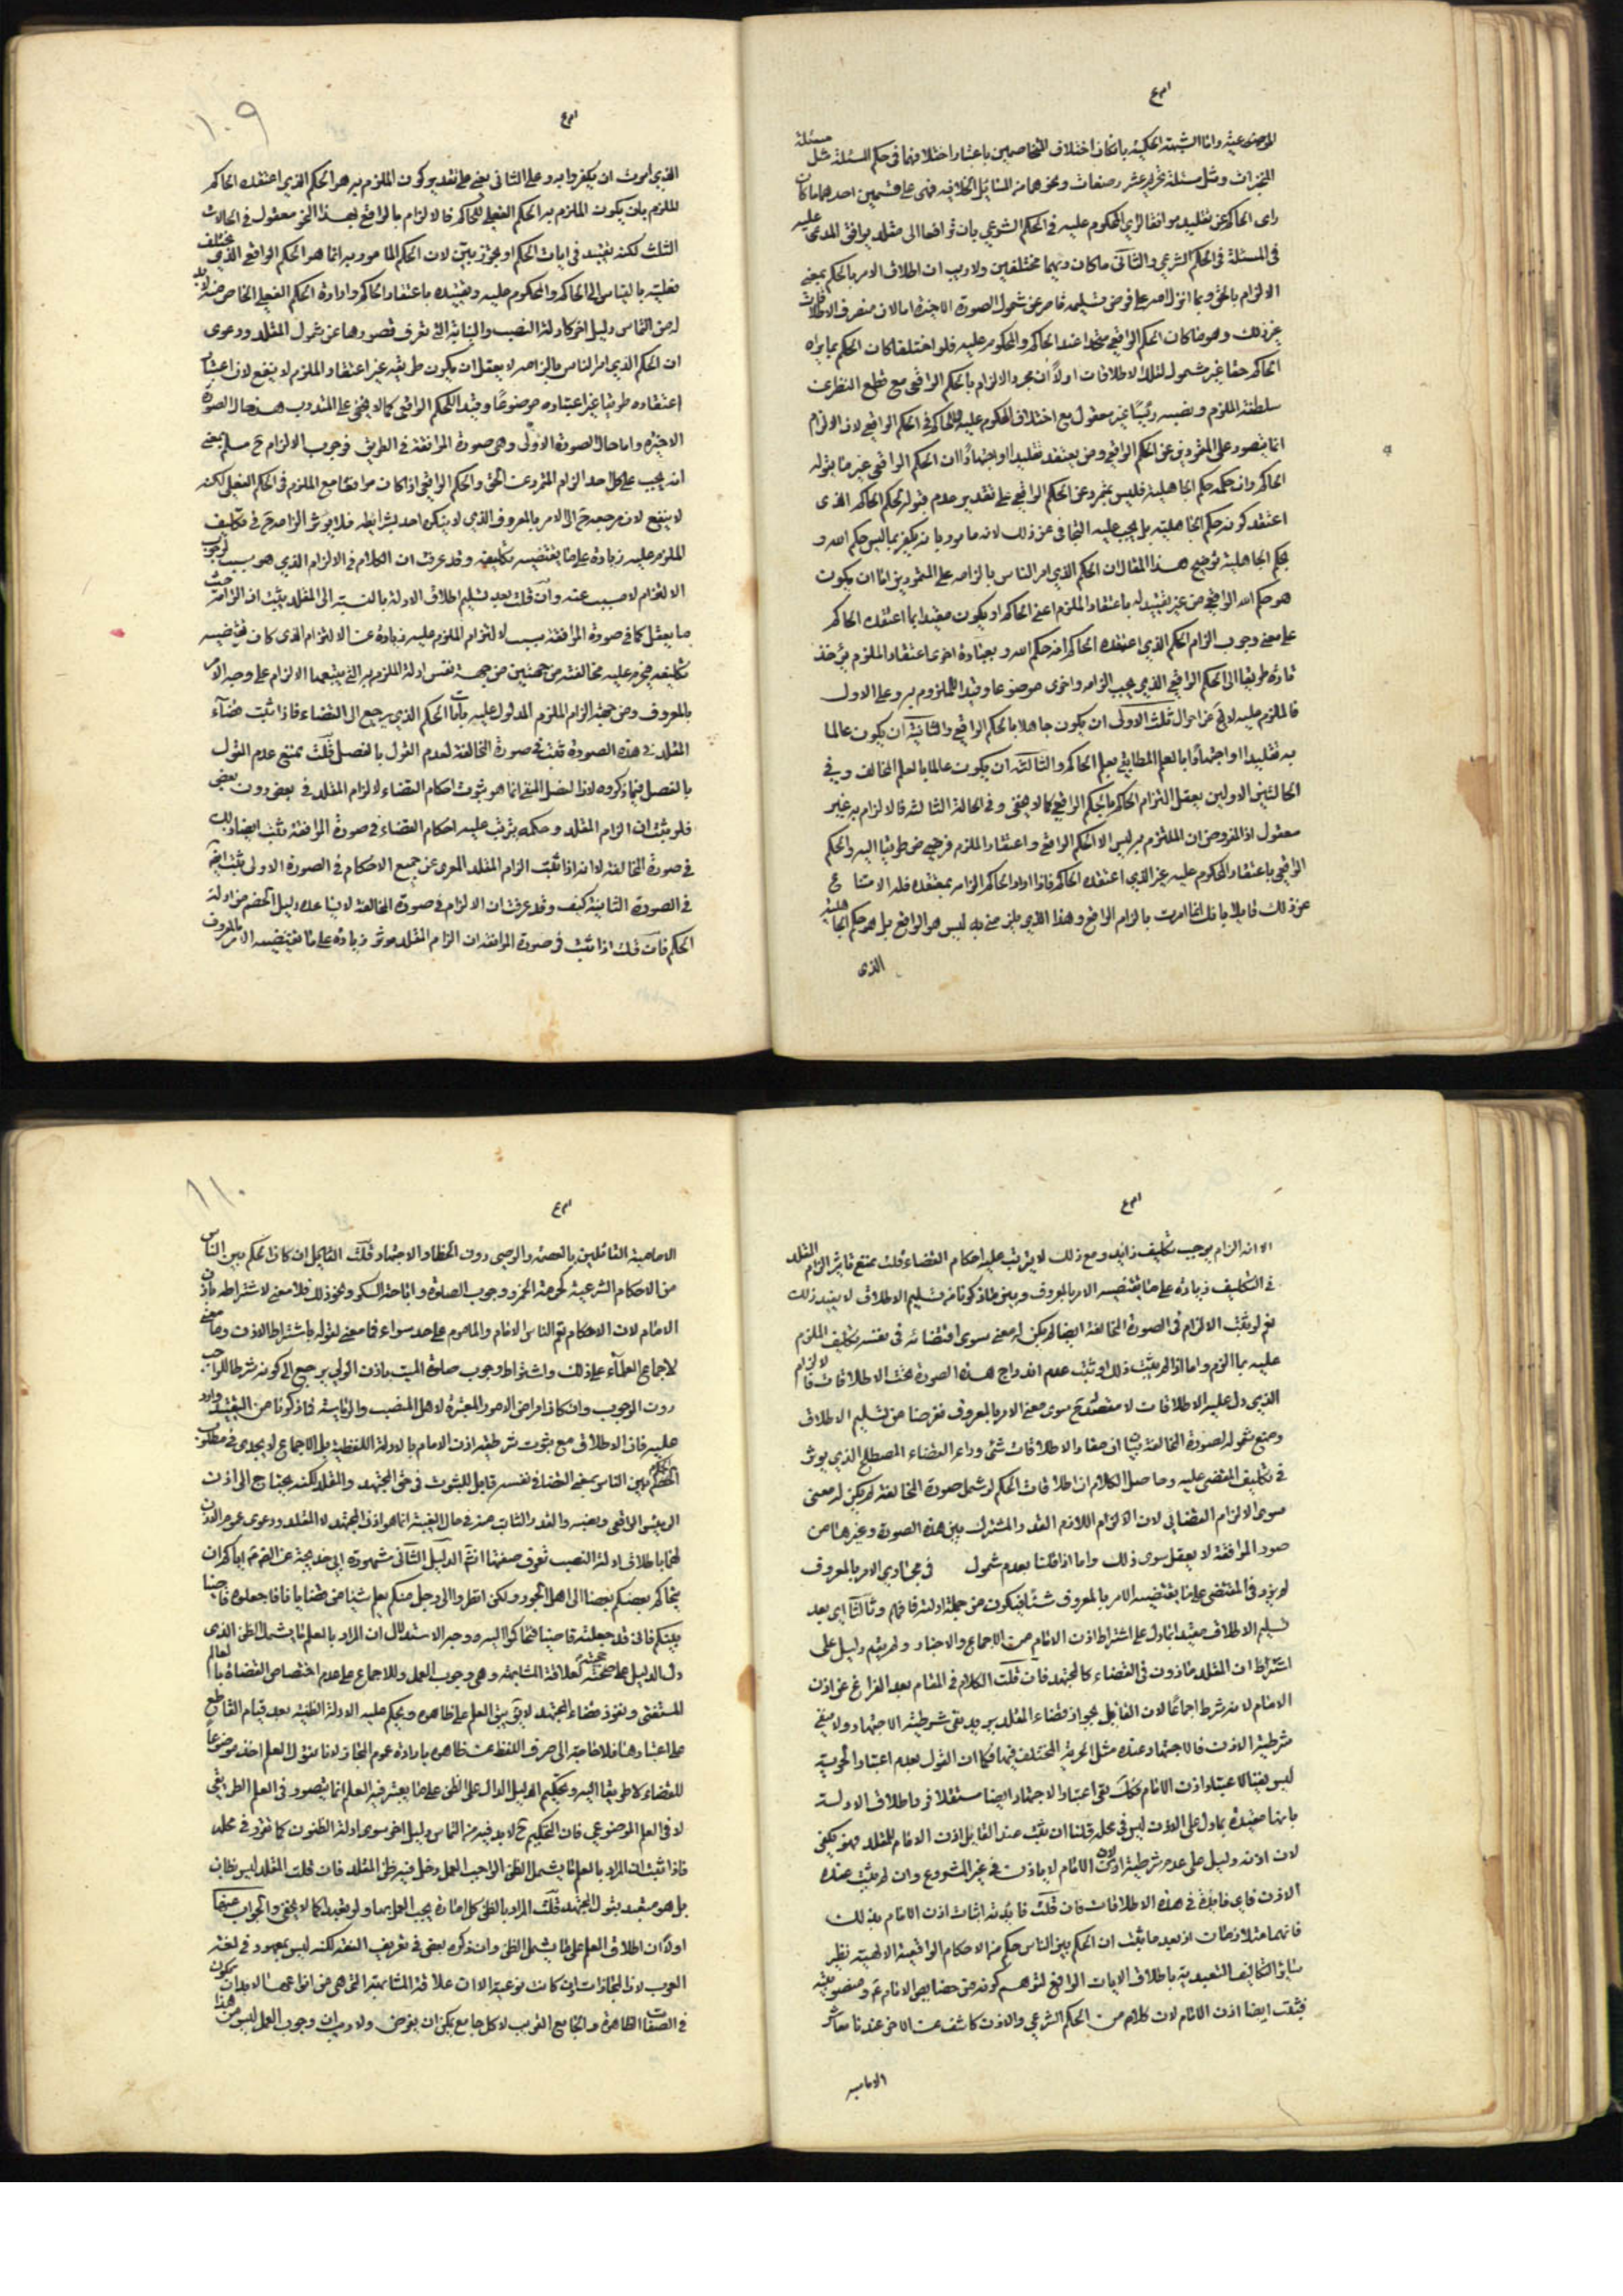 الموصى عليه واما الشبهة الحكمية بان كان اختلاف المتخاصمين باعتبار اختلافهما فى حكم المسئلة مثل مسئلة
المنجزات ومثل مسئلة عشر رضعات ونحوهما من المسائل الخلافية فهى على قسمين احدهما ما كان
راى الحاكم عن تقليد موافقا لراى المحكوم عليه فى الحكم الشرعى بان ترافعا الى مقلد يوافق المدعى عليه
فى المسئلة فى الحكم الشرعى والثانى ما كان رايهما مختلفين ولا ريب ان اطلاق الامر بالحكم بمعنى
الالزام بالحق وبما انزل الله على فرض تسليمه قاصر عن شمول الصورة الاخيرة امالان منصرف الاطلاقات
غير ذلك وهو ما كان الحكم الواقعى متحدا عند الحاكم والمحكوم عليه فلو اختلفا كان الحكم بما يراه
الحاكم حقا غير مشمول لتلك الاطلاقات او لان مجرد الالزام بالحكم الواقعى مع قطع النظر عن
سلطنة الملزم ونصبه رئيسا غير معقول مع اختلاف المحكوم عليه للحاكم فى الحكم الواقعى لان الالزام
انما يتصور على المتمردين عن الحكم الواقعى ومن يعتقد تقليدا او اجتهادا ان الحكم الواقعى غير ما يقوله
الحاكم وان حكمه حكم الجاهلية فليس بمتمرد عن الحكم الواقعى على تقدير عدم قبوله لحكم الحاكم الذى
اعتقد كونه حكم الجاهلية بل يجب عليه التجافى عن ذلك لانه مامور بان يكفر بما ليس حكم الله و
بحكم الجاهلية توضيح هذا المقال ان الحكم الذى امر الناس بالزامه على المتمردين اما ان يكون
هو حكم الله الواقعى من غير تقييد له باعتقاد الملزم اعنى الحاكم او يكون مقيدا بما اعتقده الحاكم
على معنى وجوب الزام الحكم الذى اعتقده الحاكم انه حكم الله وبعبارة اخرى اعتقاد الملزم يؤخذ
تارة طريقا الى الحكم الواقعى الذى يجب الزامه واخرى موضوعا وقيدا للملزوم به وعلى الاول
فالملزم عليه لا يخ عن احوال ثلث الاولى ان يكون جاهلا بالحكم الواقعى والثانية ان يكون عالما
به تقليدا او اجتهادا بالعلم المطابق بعلم الحاكم والثالثة ان يكون عالما بالعلم المخالف وفى
الحالتين الاوليين يعقل التزام الحاكم بالحكم الواقعى كما لا يخفى وفى الحالة الثالثة فالالزام به غير
معقول اذ المفروض ان الملتزم به ليس الا الحكم الواقعى واعتقاد الملزم فرضى من طريقا اليه والحكم
الواقعى باعتقاد المحكوم عليه غير الذى اعتقده الحاكم فاذا اراد الحاكم الزامه بمعتقده فله الامتناع
عن ذلك قائلا بانك انما امرت بالزام الواقع وهذا الذى تلزمنى به ليس هو الواقع بل هو حكم الجاهلية
الذى
١٠٩
الذى امرت ان يكفروا به وعلى الثانى يعنى على تقدير كون الملزم به هو الحكم الذى اعتقده الحاكم
الملزم بان يكون الملزم به الحكم الفعلى للحاكم فالالزام بالواقع بهذا النحو معقول فى الحالات
الثلث لكنه تقييد فى ايات الحكم او تجوز بين لان الحكم المامور به انما هو الحكم الواقعى الذى يختلف
فعليته بالقياس الى الحاكم والمحكوم عليه وتقييده باعتقاد الحاكم وارادة الحكم الفعلى الخاص منه لابد
له من التماس دليل اخر كادلة النصب والنيابة التى تعرف قصورها عن شمول المقلد ودعوى
ان الحكم الذى امر الناس بالزامه لا يعقل ان يكون طريقه غير اعتقاد الملزم لا ينفع لان اعتبار
اعتقاده طريقا غير اعتباره موضوعا وقيدا للحكم الواقعى كما لا يخفى على المتدرب هذا حال الصورة
الاخيرة واما حال الصورة الاولى وهى صورة الموافقة فى الطريق فوجوب الالزام ح مسلم يعنى
انه يجب على كل احد الزام المتمرد عن الحق والحكم الواقعى اذا كان موافقا مع الملزم فى الحكم الفعلى لكنه
لا ينفع لان مرجعه ح الى الامر بالمعروف الذى لا ينكره احد بشرايطه فلا يؤثر الزامه ح فى تكليف
الملزم عليه زيادة على ما يقتضيه تكليفه وقد عرفت ان الكلام فى الالزام الذى هو سبب لوجوب
الالتزام لا مسبب عنه وان قلت بعد تسليم اطلاق الادلة بالنسبة الى المقلد يثبت ان الزامه حيث
ما يعقل كما فى صورة الموافقة سبب لالتزام الملزم عليه زيادة عن الالتزام الذى كان يقتضيه
تكليفه فيحرم عليه مخالفته من جهتين من جهة نفس ادلة الملزم به التى يتبعها الالزام على وجه الامر
بالمعروف ومن جهة الزام الملزم المدلول عليه بايات الحكم الذى يرجع الى القضاء فاذا ثبت قضاء
المقلد فى هذه الصورة ثبت فى صورة المخالفة لعدم القول بالفصل قلت نمنع عدم القول
بالفصل فيما ذكروه اذ الفصل المنفى انما هو ثبوت احكام القضاء لالزام المقلد فى بعض دون بعض
فلو ثبت ان الزام المقلد وحكمه يترتب عليه احكام القضاء فى صورة الموافقة ثبت ايضا ذلك
فى صورة المخالفة لا انه اذا ثبت الزام المقلد المعرى عن جميع الاحكام فى الصورة الاولى ثبت ايضا
فى الصورة الثانية كيف وقد عرفت ان الالزام فى صورة المخالفة لا يساعده دليل الخصم من ادلة
الحكم فان قلت اذا ثبت فى صورة الموافقة ان الزام المقلد موثر زيادة على ما يقتضيه الامر بالمعروف
الا انه الزام يوجب تكليف زايد ومع ذلك لا يترتب عليه احكام القضاء قلت نمنع تاثير الزام المقلد
فى التكليف زيادة على ما يقتضيه الامر بالمعروف وبين ما ذكرنا من تسليم الاطلاق لا يفيد ذلك
نعم لو ثبت الالزام فى الصورة المخالفة ايضا لم يكن له معنى سوى اقتضائه فى نفسه تكليف الملزم
عليه بما الزم واما اذا لم يثبت ذلك او ثبت عدم اندراج هذه الصورة تحت الاطلاقات فالالزام
الذى دل عليه الاطلاقات لا مقتضى له ح سوى معنى الامر بالمعروف فغرضنا من تسليم الاطلاق
ومنع شموله لصورة المخالفة بيان ان مفاد الاطلاقات شئ وراء القضاء المصطلح الذى يوثر
فى تكليف المقضى عليه وحاصل الكلام ان اطلاقات الحكم لو شمل صورة المخالفة لم يكن له معنى
سوى الالزام القضائى لان الالزام اللازم القدر المشترك بين هذه الصورة وغيرها من
صور الموافقة لا يعقل سوى ذلك واما اذا قلنا بعدم شمول فى مجارى الامر بالمعروف
لم يزد فى المقتضى على ما يقتضيه الامر بالمعروف شئ فيكون من جملة ادلته فافهم وثالثا اى بعد
تسليم الاطلاق مقيد بما دل على اشتراط اذن الامام من الاجماع والاخبار ولم يقم دليل على
اشتراط ان المقلد ماذون فى القضاء كالمجتهد فان قلت الكلام فى المقام بعد الفراغ عن اذن
الامام لانه شرط اجماعا لان القائل بجواز قضاء المقلد يريد نفى شرطية الاجتهاد ولا ينفى
شرطية الاذن فالاجتهاد عنده مثل الحرية المختلف فيها فكما ان القول بعدم اعتبار الحرية
ليس نفيا لاعتبار اذن الامام فكذلك نفى اعتبار الاجتهاد ايضا مستقلا فرد اطلاق الادلة
بانها مقيدة بما دل على الاذن ليس فى محله قلنا ان ثبت عند القائل اذن الامام للمقلد فهو يكفى
لان الاذن دليل على عدم شرطية الاجتهاد لان الامام لا ياذن فى غير المشروع وان لم يثبت عنده
الاذن فاى فائدة فى هذه الاطلاقات فان قلت فائدته اثبات اذن الامام بذلك
فانهما متلازمان اذ بعد ما ثبت ان الحكم بين الناس حكم من الاحكام الواقعية الالهية نظير
ساير التكاليف التعبدية باطلاق الايات الواقع لتوهم كونه من خصايص الامام ع ومنصوبيته
فيثبت ايضا اذن الامام لان كلام من الحكم الشرعى والاذن كاشف عن الاخر عندنا معاشر
الامامية
١١٠
الامامية القائلين بالعصمة والوحى دون الخطاء والاجتهاد قلت القائل ان كان الحكم بين الناس
من الاحكام الشرعية كحرمة الخمر ووجوب الصلوة واباحة السكر ونحو ذلك فلا معنى لاشتراطه باذن
الامام لان الاحكام تعم الناس الامام والماموم على حد سواء فما معنى لقوله باشتراط الاذن وما معنى
لاجماع العلماء على ذلك واشتراط وجوب صلوة الميت باذن الولى يرجع الى كونه شرطا للواجب
دون الوجوب وان كان امرا من الامور المعتبرة لاهل المنصب والرياسة فما ذكرنا من التقييد وارد
عليه فان الاطلاق مع ثبوت شرطية اذن الامام بالادلة اللفظية بل الاجماع لا يجدى فى مطلوب
الخصم فالحكم بين الناس بمعنى القضاء فى نفسه قابل للثبوت فى حق المجتهد والمقلد لكنه يحتاج الى اذن
الرئيس الواقعى ونصبه والقدر الثابت منه فى حال الغيبة انما هو اذن المجتهد لا المقلد ودعوى عموم الاذن
لهما باطلاق ادلة النصب تعرف ضعفها انشاء الله الدليل الثانى مشهورة ابى خديجة عن الص ع اياكم ان
يتحاكم بعضكم بعضا الى اهل الجور ولكن انظروا الى رجل منكم يعلم شيئا من قضايانا فاجعلوه قاضيا
بينكم فانى قد جعلته قاضيا فتحاكموا اليه ووجه الاستدلال ان المراد بالعلم ما يشمل الظن الذى
دل الدليل على حجيته لعلاقة المشابهة وهى وجوب العمل وللاجماع على عدم اختصاص القضاء بالعالم
للمستفتى ونفوذ قضاء المجتهد لا يق يبقى العلم على ظاهره ويحكم عليه الادلة الظنية بعد قيام القاطع
على اعتبارها فلا حاجة الى صرف اللفظ عن ظاهره بارادة عموم المجاز لانا نقول العلم اخذ موضوعا
للقضاء لا طريقا اليه وتحكيم الدليل الدال على الظن على ما يعتبر فيه العلم انما يتصور فى العلم الطريقى
لا فى العلم الموضوعى فان التحكيم ح لا بد فيه من التماس دليل اخر سوى ادلة الظنون كما تقرر فى محله
فاذا ثبت ان المراد بالعلم ما يشمل الظن الواجب العمل دخل فيه ظن المقلد فان قلت المقلد ليس بظان
بل هو متعبد بقول المجتهد قلت المراد بالظن كل امارة يجب العمل بها ولو تعبدا كما لا يخفى والجواب عنها
اولا ان اطلاق العلم على ما يشمل الظن وان ذكره بعض فى تعريف الفقه لكنه ليس بمعهود فى لغة
العرب لان المجازات وان كانت نوعية الا ان علاقة المشابهة التى هى من انواعها لابد ان يكون
فى الصفات الظاهرة والجامع القريب لا كل جامع يمكن ان يفرض ولا ريب ان وجوب العمل ليس من هذا